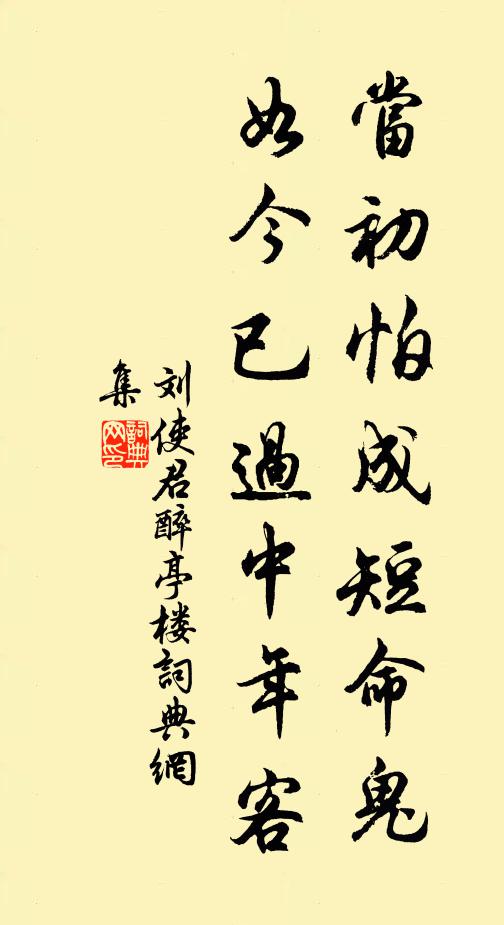 當初怕成短命鬼
如今已過中年客
刘使君醉亭楼詞典網
集
詞典
网印